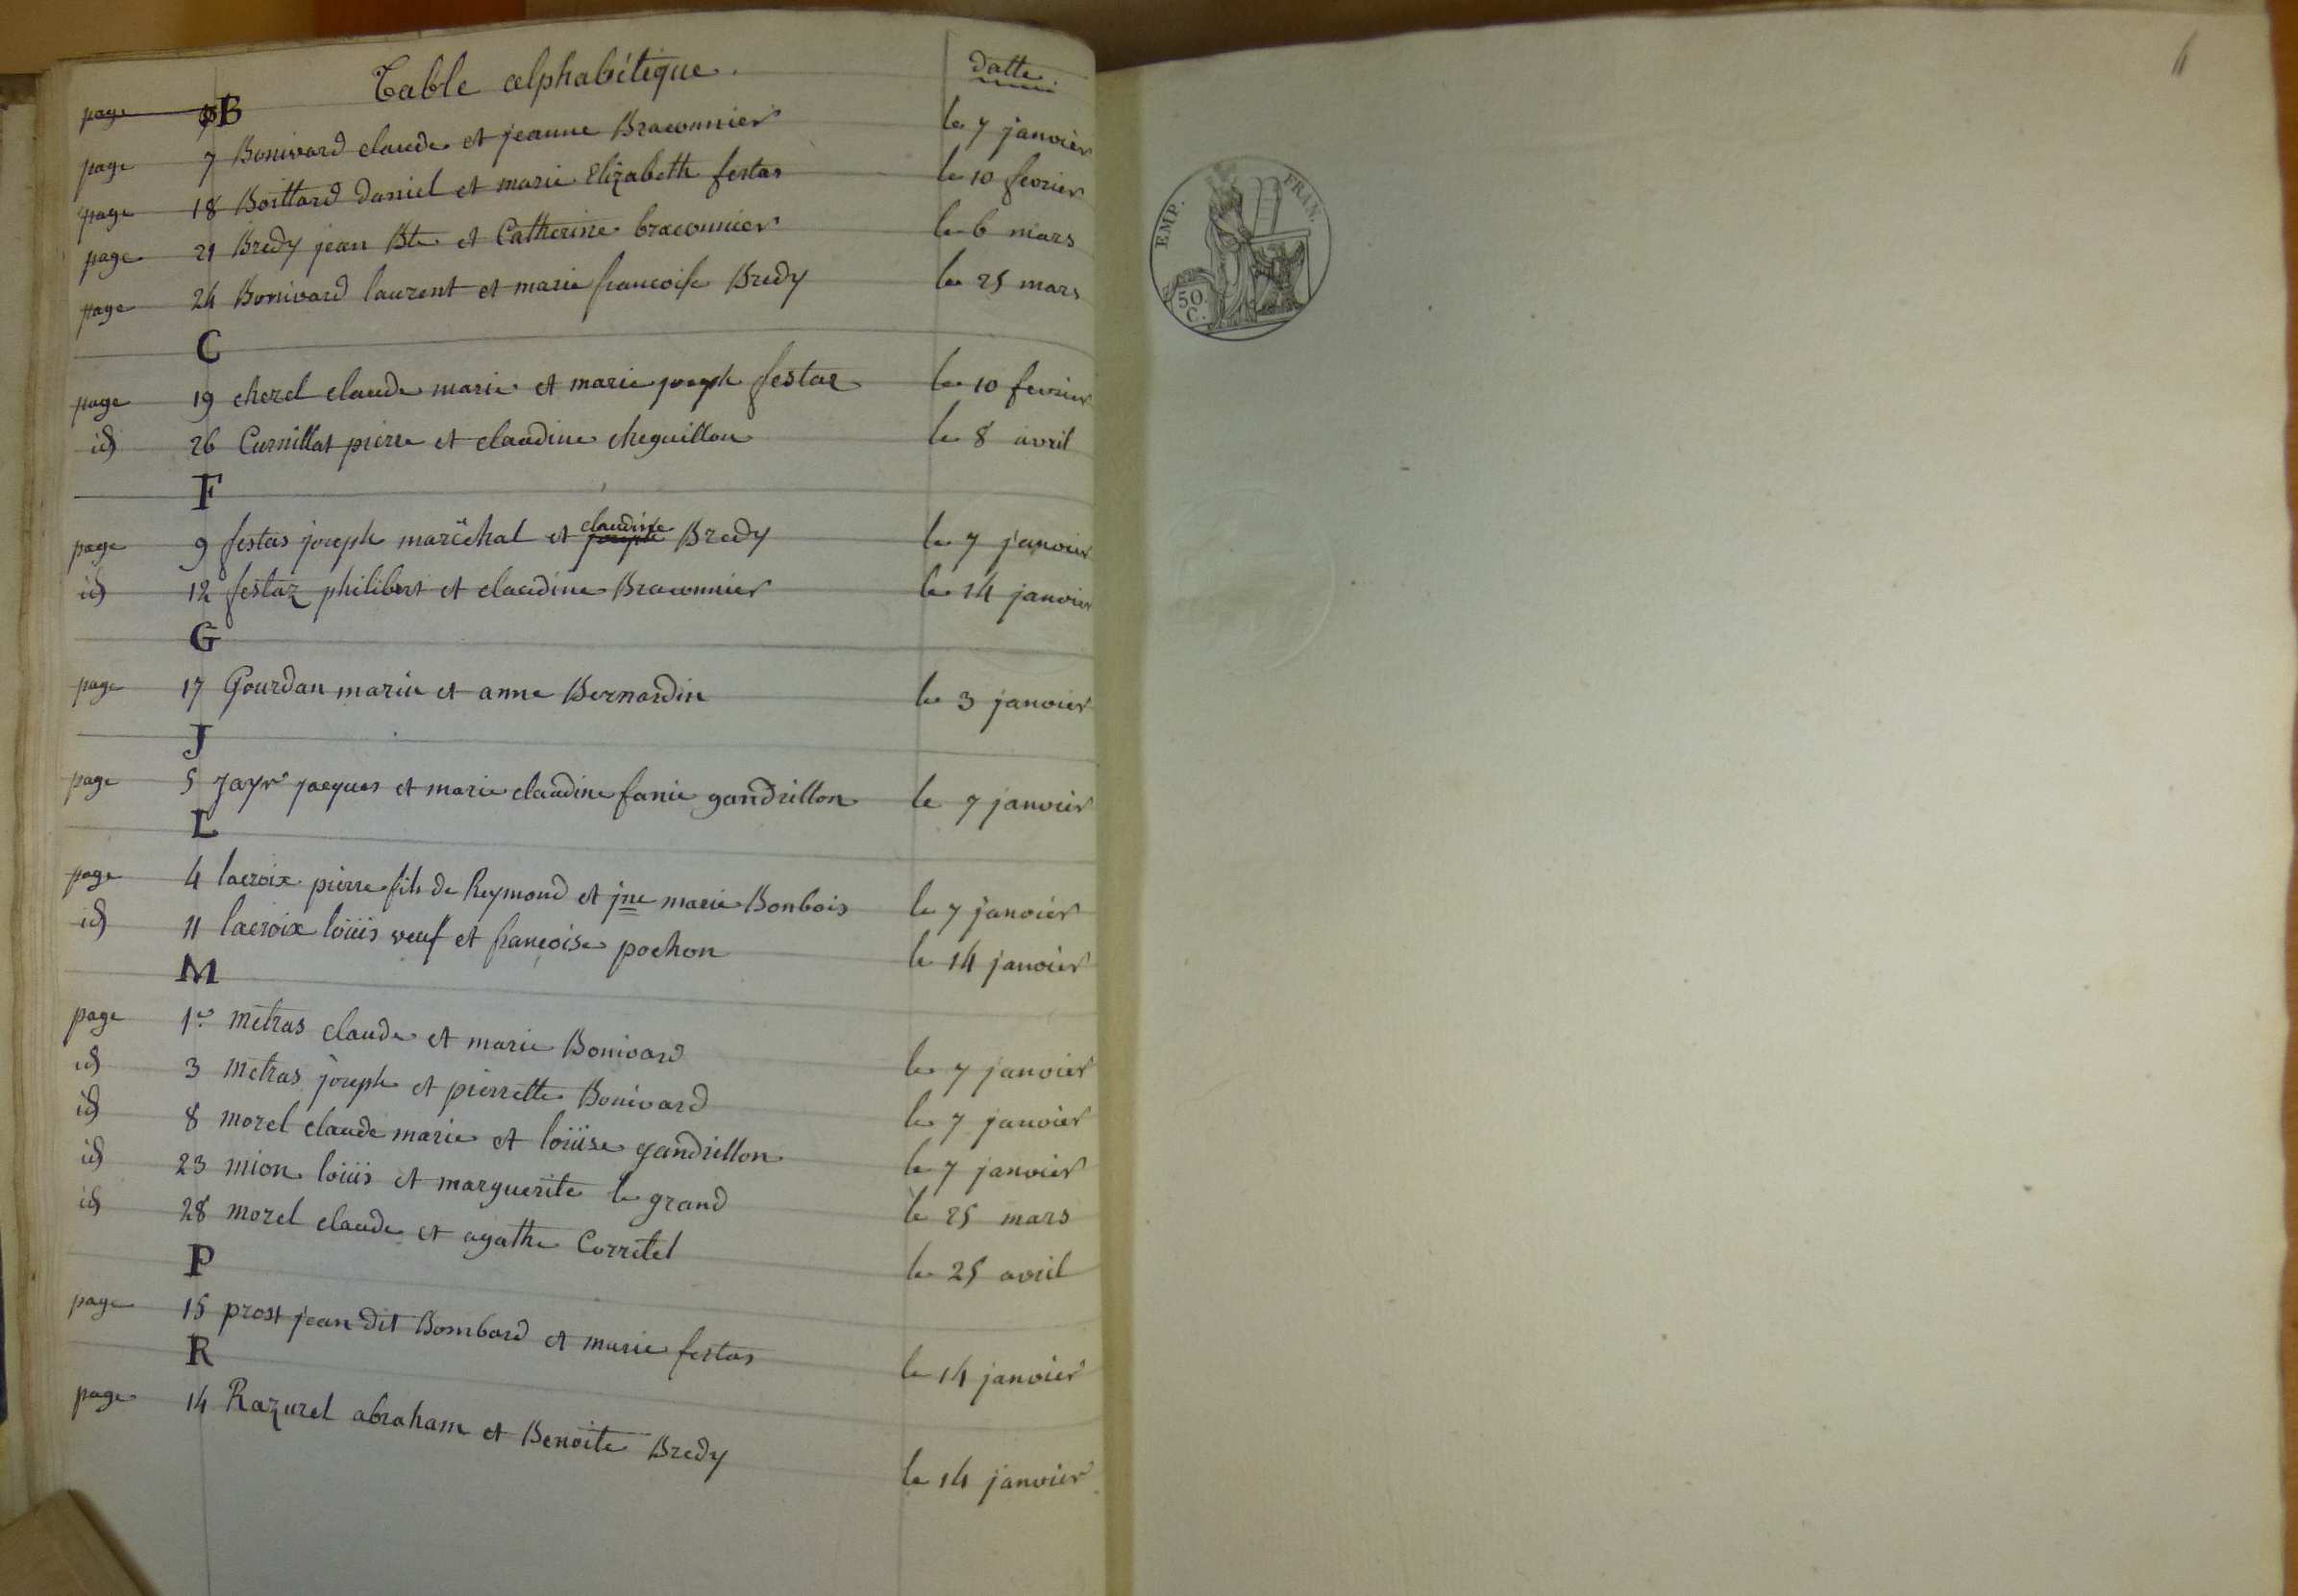 Table alphabétique. datte.
page B
page 7 Bonivard claude et jeanne Braconnier le 7 janvier
page 18 Boittard daniel et marie Elizabeth festas le 10 fevrier
page 21 Bredy jean Bte et Catherine braconnier le 6 mars
page 24 Bonivard laurent et marie francoise Bredy le 25 mars
C
page 19 cherel claude marie et marie joseph festaz le 10 fevrier
id 26 Curnillat pierre et claudine cheguillon le 8 avril
F
claudine
page 9 festas joseph maréchal et joseph Bredy le 7 janvier
id 12 festaz philibert et claudine Braconnier le 14 janvier
G
page 17 Gourdan marin et anne Bernardin le 3 janvier
J
page 5 Jayr jacques et marie claudine fanie gandrillon le 7 janvier
L
page 4 lacroix pierre fils de Reymond et jne marie Bonbois le 7 janvier
id 11 lacroix loüis veuf et françoise pochon le 14 janvier
M
page 1er métras claude et marie Bonivard le 7 janvier
id 3 métras joseph et pierrette Bonivard le 7 janvier
id 8 morel claude marie et loüise gandrillon le 7 janvier
id 23 mion loüis et marguerite le grand le 25 mars
id 28 morel claude et agathe Corretel le 25 avril
P
page 15 prost jean dit Bombard et marie festas le 14 janvier
R
page 14 Razurel abraham et Benoite Bredy le 14 janvier
EMP. FRAN.
50
C.